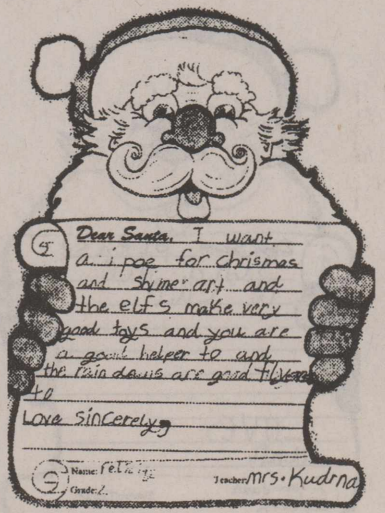 Dear Santa, I want
a i poe for chrismas
and shyner art and
the elfs make very
good toys and you are
a good helper to and
the rain deaus are good flyers
to
Love sincerely,
Name:
Teacher: Mrs. Kudrna
Grade: